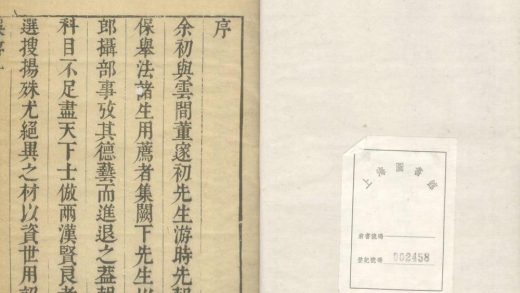 序
余初與雲間董邃初先生游時先
保舉法諸生用薦者集闕下先生
郎攝部事攷其德藝而進退之蓋
科目不足盡天下士倣兩漢賢良
選搜揚殊尤絕異之材以資世用
上海圖書館
索書號碼
登記號碼 002458